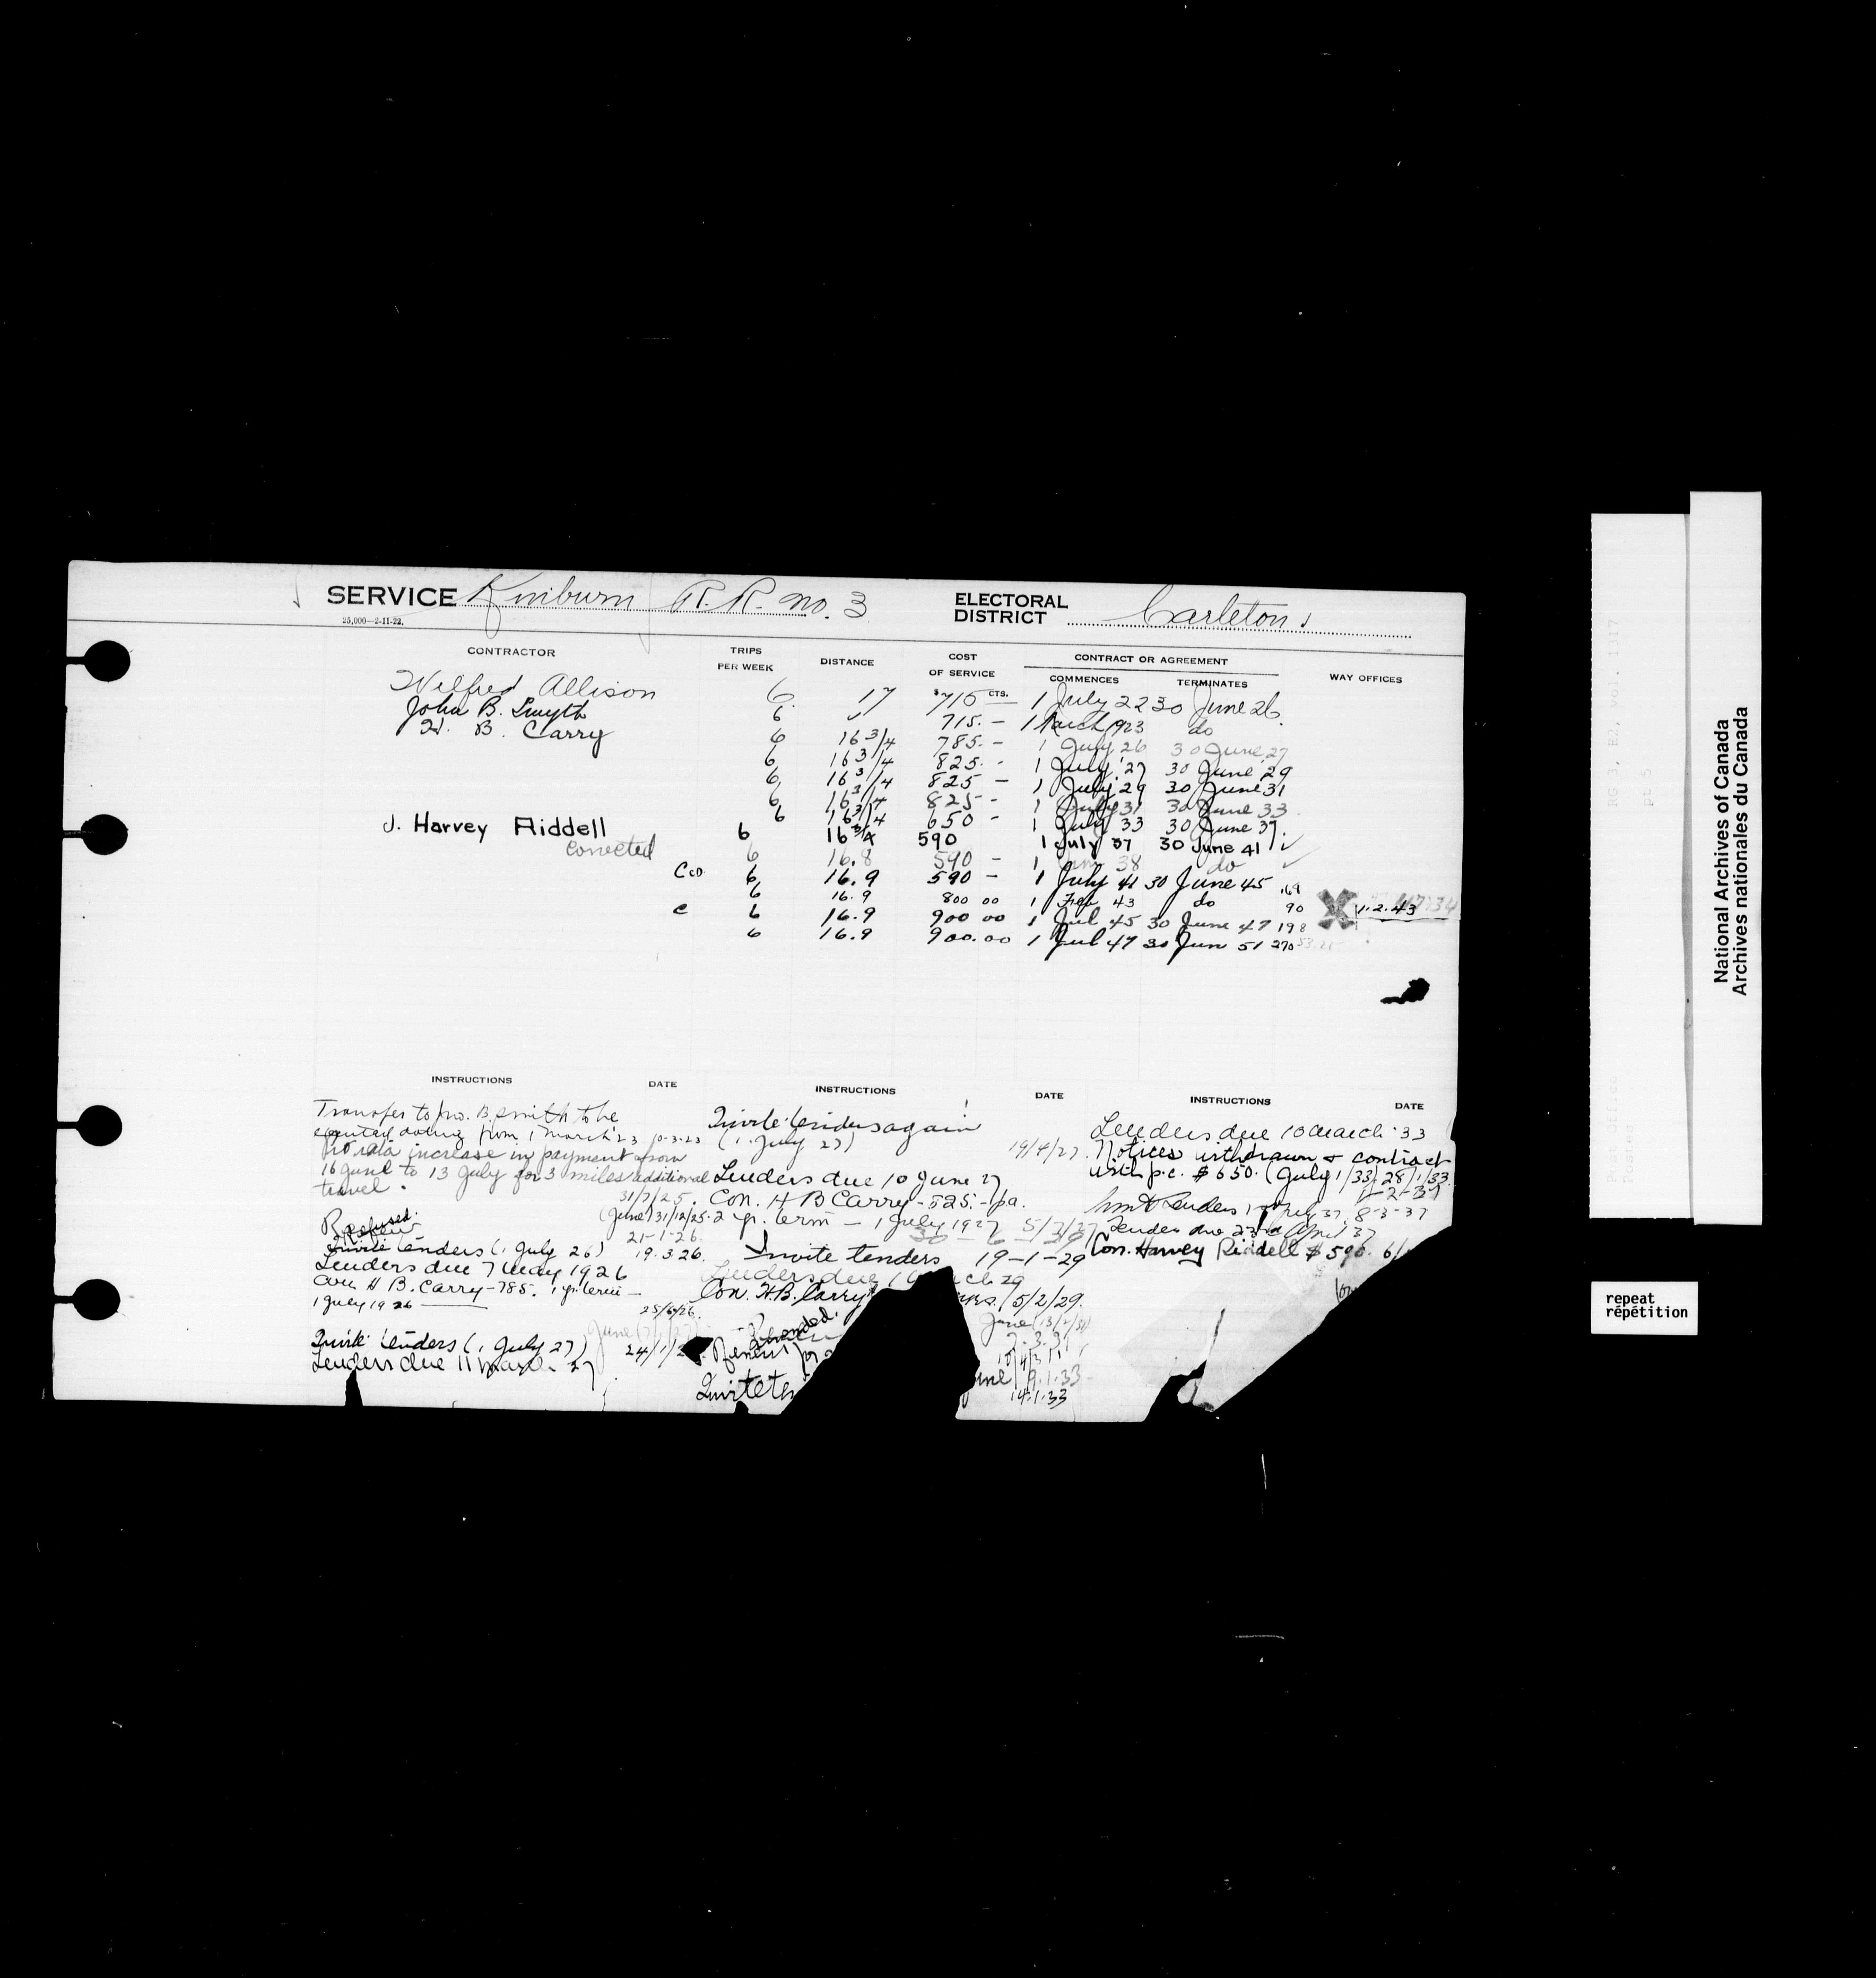 SERVICE Kinburn R.R. no. 3 ELECTORAL DISTRICT Carleton
25,000—2-11-22.
CONTRACTOR TRIPS PER WEEK DISTANCE COST OF SERVICE CONTRACT OR AGREEMENT COMMENCES TERMINATES WAY OFFICES
Wilfred Allison 6 17 $715 CTS. — 1 July 22 30 June 26
John B. Smyth 6 ✓ 715. — 1 March 1923 do
H. B. Carry 6 16 3/4 785. — 1 July 26 30 June 27
6 16 3/4 825. - 1 July '27 30 June '29
6 16 3/4 825 — 1 July 29 30 June 31
6 16 3/4 825 - 1 July 31 30 June 33
6 16 3/4 650 - 1 July 33 30 June 37
J. Harvey Riddell 6 16 3/4 590 1 July 37 30 June 41 ✓
Corrected 6 16.8 590 — 1 38 do ✓
6 16.9 590 — 1 July 41 30 June 45 .69
6 16.9 800 00 1 Feb 43 do 90 1.2.43
c 6 16.9 900 00 1 Jul 45 30 June 47 198
6 16.9 900.00 1 Jul 47 30 Jun 51 270
INSTRUCTIONS DATE INSTRUCTIONS DATE INSTRUCTIONS DATE
Transfer to Jno. B. Smith to be
dating from 1 March '23 10-3-23
Pro rata increase in payment from
16 June to 13 July for 3 miles additional
travel. 31/7/25.
(June) 31/12/25
Refused. 21-1-26.
Invite tenders (1 July 26) 19.3.26.
Tenders due 7 May 1926
Con. H B. Carry - 785. 1 yr. term —
1 July 1926 25/6/26
June
Invite tenders (1 July 27) 24/1/2
Tenders due 11 March 27
Invite tenders again
(1 July 27) 19/4/27.
Tenders due 10 June 27
Con. H B Carry - 825.- pa.
2 yr. term — 1 July 1927 5/7/27
30 - 6 - 29
Invite tenders 19-1-29
Tenders due 1 March 29
Con. H.B. Carry yrs. 5/2/29.
June
2.3.31
Renew for
Invite te June 9.1.33
14.1.33
Tenders due 10 March '33
Notices withdrawn & contract
with p.c. $650. (July 1/33) 28/1/33.
1-2-37
Tenders 1 July 37, 8-3-37
Tender due 23rd April 37
Con. Harvey Riddell $590. 6/
RG 3, E2, vol. 1317
pt 5
Post Office
Postes
National Archives of Canada
Archives nationales du Canada
repeat
répétition